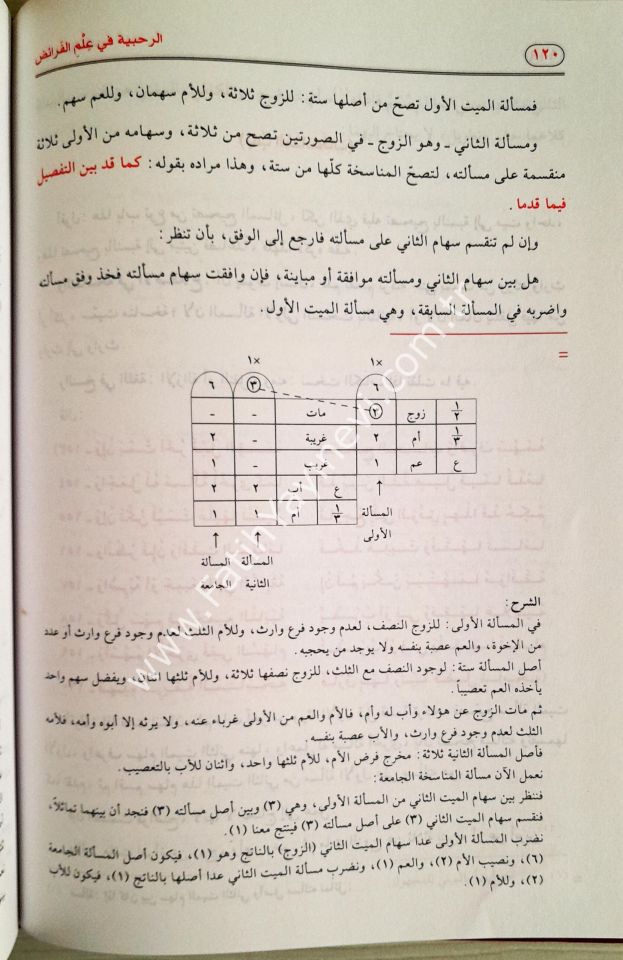 ١٢٠
الرحبية في عِلْمِ الفَرائض
فمسألة الميت الأول تصحّ من أصلها ستة: للزوج ثلاثة، وللأم سهمان، وللعم سهم.
ومسألة الثاني - وهو الزوج - في الصورتين تصح من ثلاثة، وسهامه من الأولى ثلاثة
منقسمة على مسألته، لتصحّ المناسخة كلّها من ستة، وهذا مراده بقوله: كما قد بين التفصيل
فيما قدما.
وإن لم تنقسم سهام الثاني على مسألته فارجع إلى الوفق، بأن تنظر:
هل بين سهام الثاني ومسألته موافقة أو مباينة، فإن وافقت سهام مسألته فخذ وفق مسألته
واضربه في المسألة السابقة، وهي مسألة الميت الأول.
=
×١ ×١
٦ ٣ ٦
١/٢ زوج ٣ مات - -
١/٣ أم ٢ غريبة - ٢
ع عم ١ غريب - ١
ع أب ٢ ٢
١/٣ أم ١ ١
المسألة الأولى
المسألة الثانية
المسألة الجامعة
الشرح:
في المسألة الأولى: للزوج النصف، لعدم وجود فرع وارث، وللأم الثلث لعدم وجود فرع وارث أو عدد
من الإخوة، والعم عصبة بنفسه ولا يوجد من يحجبه.
أصل المسألة ستة: لوجود النصف مع الثلث، للزوج نصفها ثلاثة، وللأم ثلثها اثنان، ويفضل سهم واحد
يأخذه العم تعصيباً.
ثم مات الزوج عن هؤلاء وأب له وأم، فالأم والعم من الأولى غرباء عنه، ولا يرثه إلا أبوه وأمه، فلأمه
الثلث لعدم وجود فرع وارث، والأب عصبة بنفسه.
فأصل المسألة الثانية ثلاثة: مخرج فرض الأم، للأم ثلثها واحد، واثنان للأب بالتعصيب.
نعمل الآن مسألة المناسخة الجامعة:
فننظر بين سهام الميت الثاني من المسألة الأولى، وهي (٣) وبين أصل مسألته (٣) فنجد أن بينهما تماثلاً،
فنقسم سهام الميت الثاني (٣) على أصل مسألته (٣) فينتج معنا (١).
نضرب المسألة الأولى عدا سهام الميت الثاني (الزوج) بالناتج وهو (١)، فيكون أصل المسألة الجامعة
(٦)، ونصيب الأم (٢)، والعم (١)، ونضرب مسألة الميت الثاني عدا أصلها بالناتج (١)، فيكون للأب
(٢)، وللأم (١).
www.FatihYayinevi.com.tr